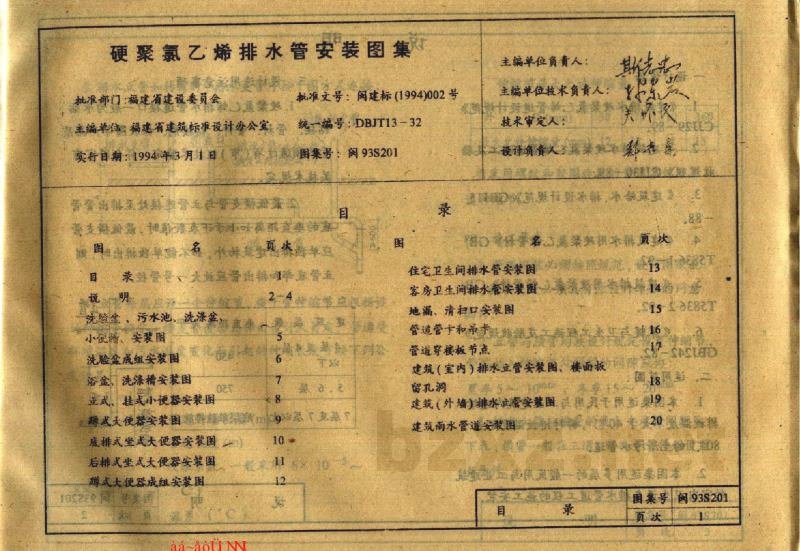 硬聚氯乙烯排水管安装图集
批准部门：福建省建设委员会 批准文号：闽建标(1994)002号
主编单位：福建省建筑标准设计办公室 统一编号：DBJT13－32
实行日期：1994年3月1日 图集号：闽93S201
主编单位负责人：
主编单位技术负责人：
技术审定人：
设计负责人：
目 录
图 名 页次
目 录 1
说 明 2－4
洗脸盆、污水池、洗涤盆、
小便槽、安装图 5
洗脸盆成组安装图 6
浴盆、洗涤槽安装图 7
立式、挂式小便器安装图 8
蹲式大便器安装图 9
底排式坐式大便器安装图 10
后排式坐式大便器安装图 11
蹲式大便器成组安装图 12
图 名 页次
住宅卫生间排水管安装图 13
客房卫生间排水管安装图 14
地漏、清扫口安装图 15
管道管卡和吊卡 16
管道穿楼板节点 17
建筑（室内）排水立管安装图、楼面板
留孔洞 18
建筑（外墙）排水立管安装图 19
建筑雨水管道安装图 20
目 录
图集号 闽93S201
页次 1